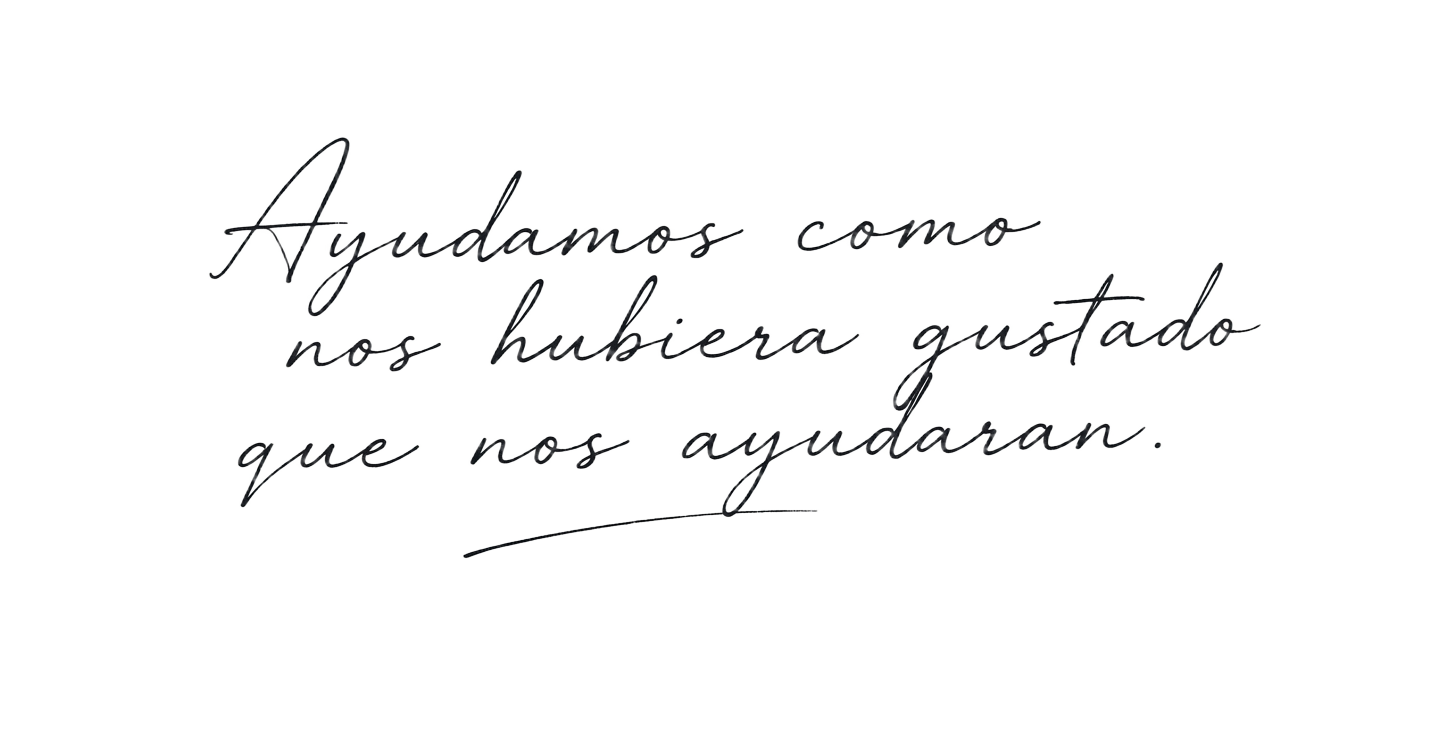 Ayudamos como
nos hubiera gustado
que nos ayudaran.